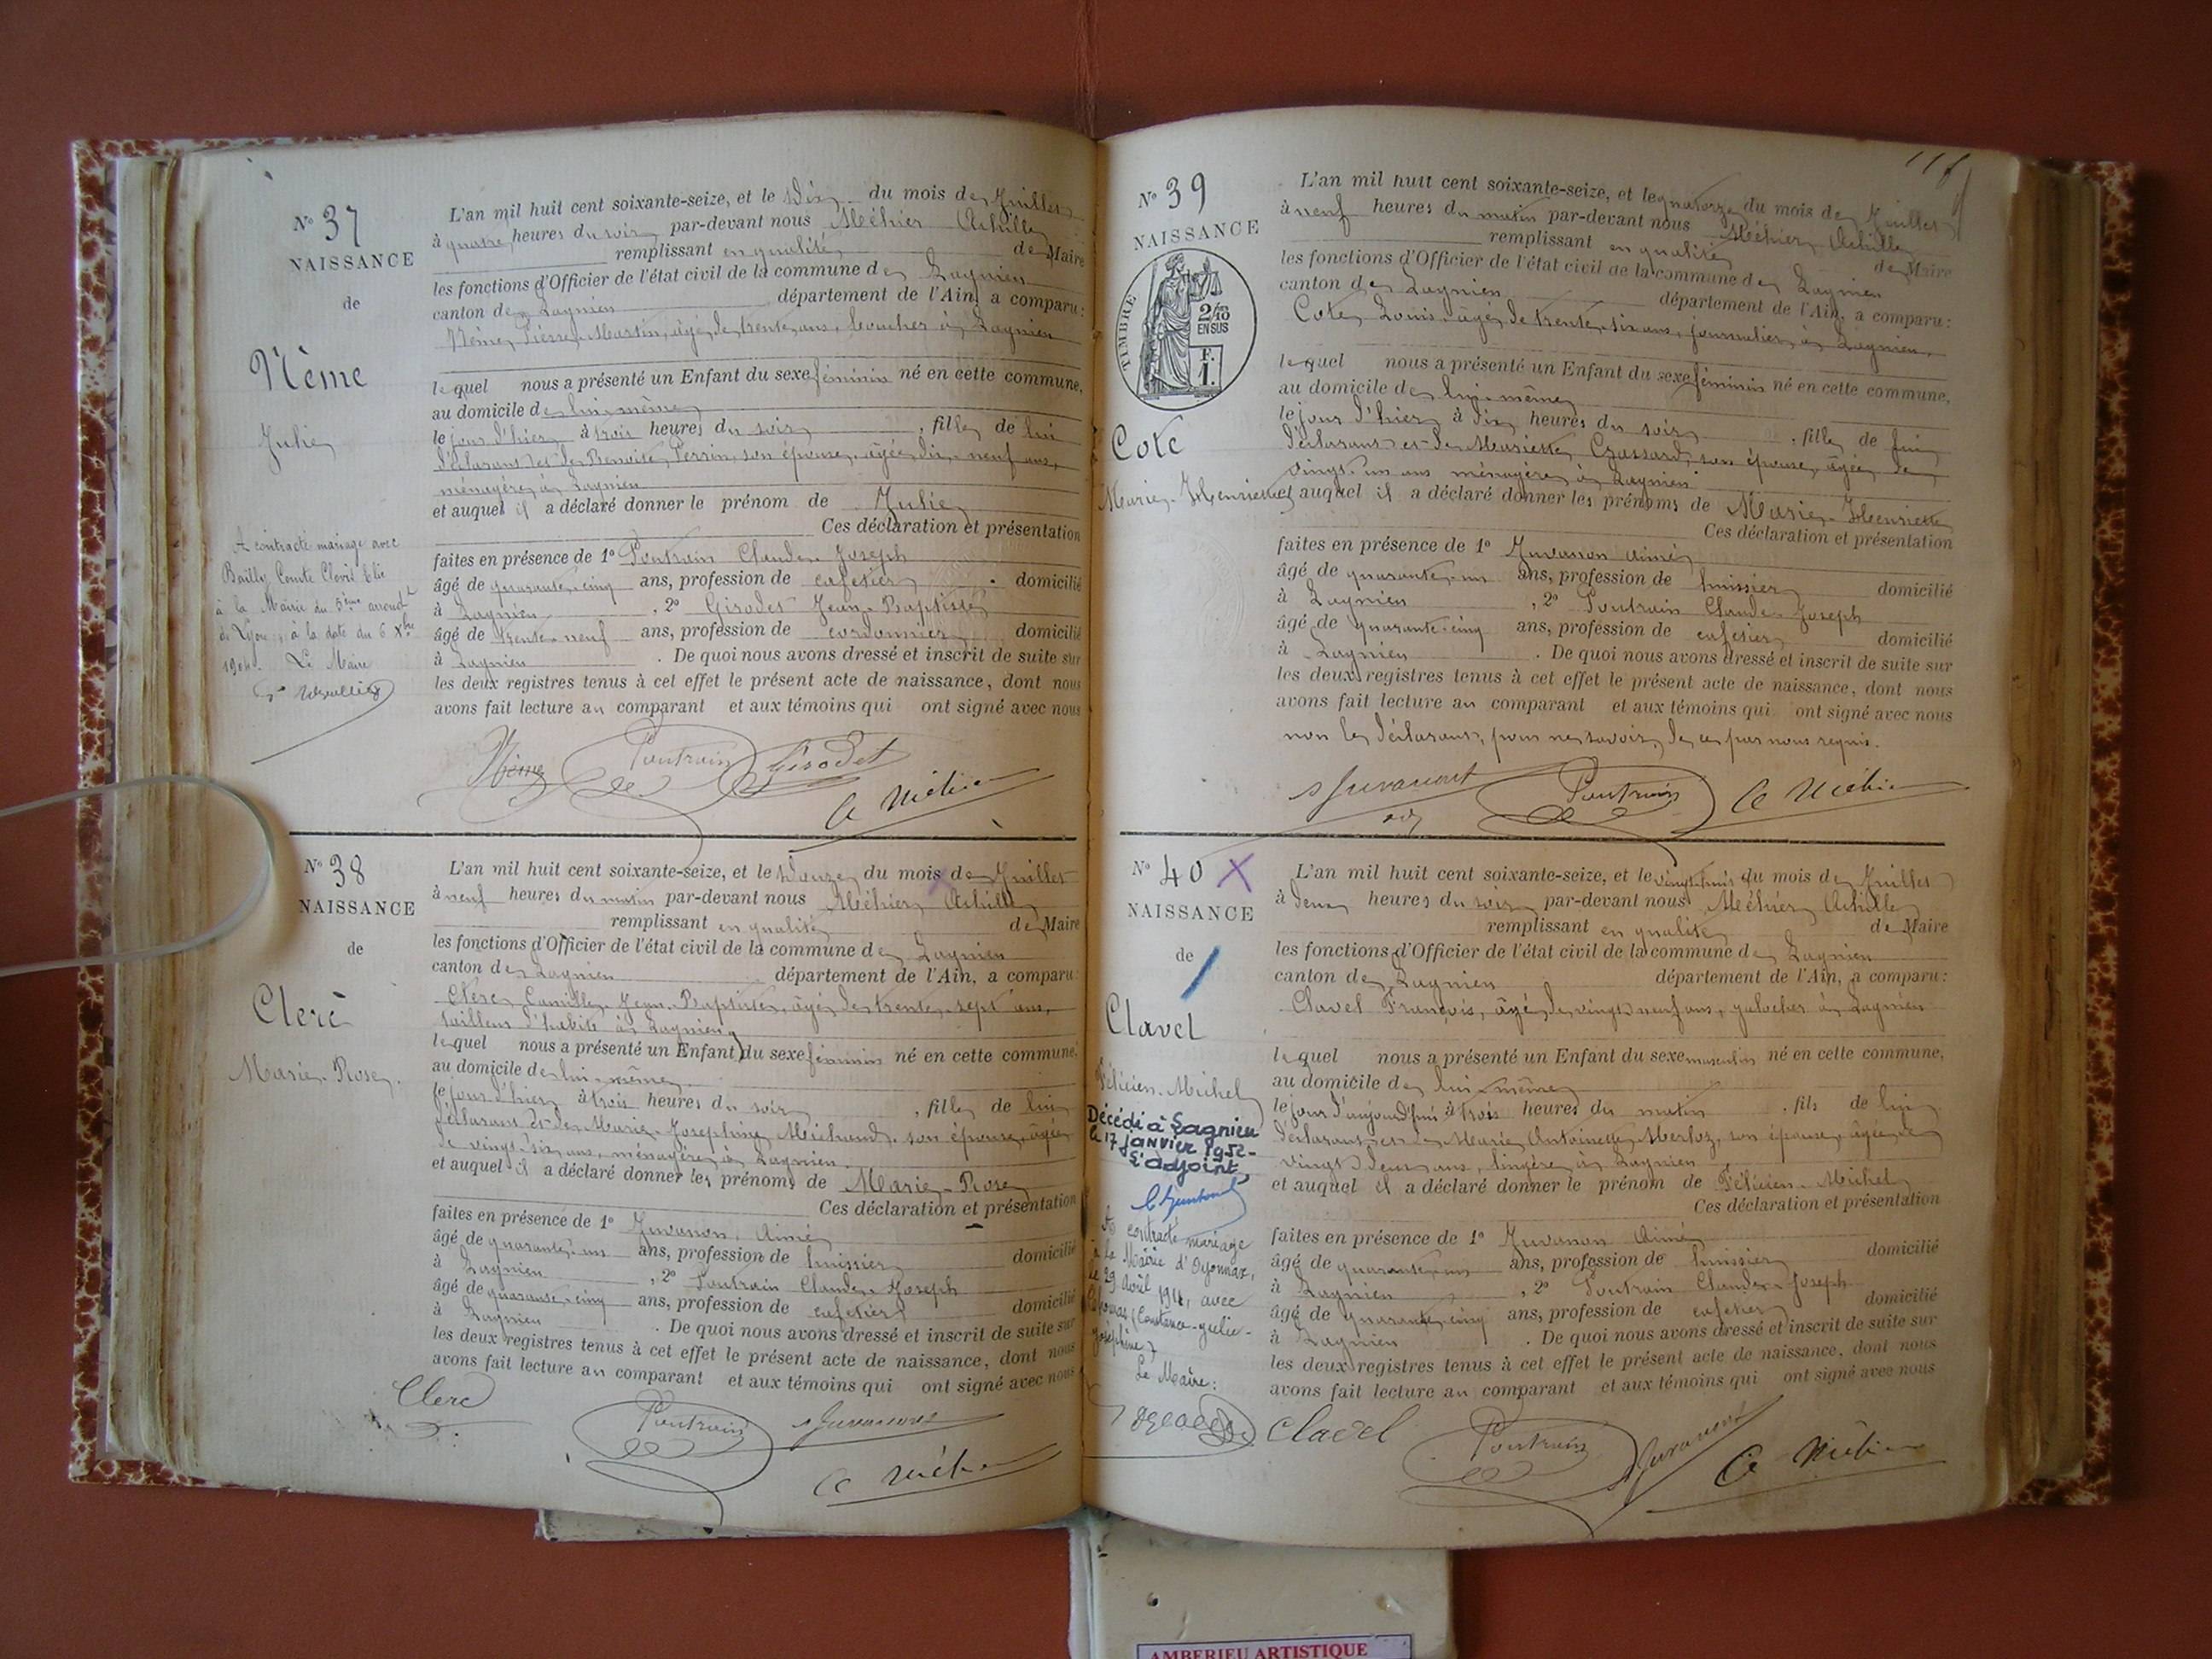 N° 37
NAISSANCE
de
Nême
Julie
A contracté mariage avec
Bailly Comte Clovis Elie
à la Mairie du 5ème arrondt
de Lyon, à la date du 6 Xbre
Le Maire
L'an mil huit cent soixante-seize, et le dix du mois de Juillet
à quatre heures du soir par-devant nous Méhier Achille
remplissant en qualité de Maire
les fonctions d'Officier de l'état civil de la commune de Lagnieu
canton de Lagnieu département de l'Ain, a comparu:
Nême Pierre-Martin, âgé de trente ans, boucher à Lagnieu
lequel nous a présenté un Enfant du sexe féminin né en cette commune,
au domicile de lui-même
le jour d'hier à trois heures du soir, fille de lui
déclarant et de Benoite Perrin, son épouse, âgée dix-neuf ans,
ménagère à Lagnieu
et auquel il a déclaré donner le prénom de Julie
Ces déclaration et présentation
faites en présence de 1° Poutrain Claude-Joseph
âgé de quarante-cinq ans, profession de cafetier domicilié
à Lagnieu, 2° Girodet Jean-Baptiste
âgé de trente-neuf ans, profession de cordonnier domicilié
à Lagnieu. De quoi nous avons dressé et inscrit de suite sur
les deux registres tenus à cet effet le présent acte de naissance, dont nous
avons fait lecture au comparant et aux témoins qui ont signé avec nous
Nême Poutrain Girodet
A Méhier
N° 38
NAISSANCE
de
Clerc
Marie-Rose
L'an mil huit cent soixante-seize, et le douze du mois de Juillet
à neuf heures du matin par-devant nous Méhier Achille
remplissant en qualité de Maire
les fonctions d'Officier de l'état civil de la commune de Lagnieu
canton de Lagnieu département de l'Ain, a comparu:
Clerc Camille-Jean-Baptiste, âgé de trente-sept ans,
tailleur d'habits à Lagnieu
lequel nous a présenté un Enfant du sexe féminin né en cette commune,
au domicile de lui-même
le jour d'hier à trois heures du soir, fille de lui
déclarant et de Marie-Josephine Michaud, son épouse, âgée
de vingt-six ans, ménagère à Lagnieu
et auquel il a déclaré donner les prénoms de Marie-Rose
Ces déclaration et présentation
faites en présence de 1° Juvanon Aimé
âgé de quarante-un ans, profession de huissier domicilié
à Lagnieu, 2° Poutrain Claude-Joseph
âgé de quarante-cinq ans, profession de cafetier domicilié
à Lagnieu. De quoi nous avons dressé et inscrit de suite sur
les deux registres tenus à cet effet le présent acte de naissance, dont nous
avons fait lecture au comparant et aux témoins qui ont signé avec nous
Clerc
Poutrain Juvanon
A Méhier
N° 39
NAISSANCE
TIMBRE
2/10
EN SUS
F.
1.
Cote
Marie-Henriette
L'an mil huit cent soixante-seize, et le quatorze du mois de Juillet
à neuf heures du matin par-devant nous Méhier Achille
remplissant en qualité de Maire
les fonctions d'Officier de l'état civil de la commune de Lagnieu
canton de Lagnieu département de l'Ain, a comparu:
Cote Louis âgé de trente-six ans, journalier à Lagnieu,
lequel nous a présenté un Enfant du sexe féminin né en cette commune,
au domicile de lui-même
le jour d'hier à dix heures du soir, fille de lui
déclarant et de Mariette Crassard, son épouse, âgée de
vingt-un ans ménagère à Lagnieu
et auquel il a déclaré donner les prénoms de Marie-Henriette
Ces déclaration et présentation
faites en présence de 1° Juvanon Aimé
âgé de quarante-un ans, profession de huissier domicilié
à Lagnieu, 2° Poutrain Claude-Joseph
âgé de quarante-cinq ans, profession de cafetier domicilié
à Lagnieu. De quoi nous avons dressé et inscrit de suite sur
les deux registres tenus à cet effet le présent acte de naissance, dont nous
avons fait lecture au comparant et aux témoins qui ont signé avec nous
non le déclarant, pour ne savoir, de ce par nous requis.
Juvanon Poutrain A Méhier
N° 40 X
NAISSANCE
de
Clavel
Félicien-Michel
Décédé à Lagnieu
le 17 janvier 1952-
L'adjoint
A contracté mariage
à la Mairie d'Oyonnax,
le 29 août avec
(Constance-Julie-
Joséphine)
Le Maire:
L'an mil huit cent soixante-seize, et le vingt-huit du mois de Juillet
à deux heures du soir par-devant nous Méhier Achille
remplissant en qualité de Maire
les fonctions d'Officier de l'état civil de la commune de Lagnieu
canton de Lagnieu département de l'Ain, a comparu:
Clavel François, âgé de vingt-neuf ans, galocher à Lagnieu
lequel nous a présenté un Enfant du sexe masculin né en cette commune,
au domicile de lui-même
le jour d'aujourd'hui à trois heures du matin, fils de lui
déclarant et de Marie Antoinette Merloz, son épouse, âgée de
vingt-deux ans, lingère à Lagnieu
et auquel il a déclaré donner le prénom de Félicien-Michel
Ces déclaration et présentation
faites en présence de 1° Juvanon Aimé
âgé de quarante-un ans, profession de huissier domicilié
à Lagnieu, 2° Poutrain Claude-Joseph
âgé de quarante-cinq ans, profession de cafetier domicilié
à Lagnieu. De quoi nous avons dressé et inscrit de suite sur
les deux registres tenus à cet effet le présent acte de naissance, dont nous
avons fait lecture au comparant et aux témoins qui ont signé avec nous
Clavel Poutrain Juvanon A Méhier
AMBERIEU ARTISTIQUE